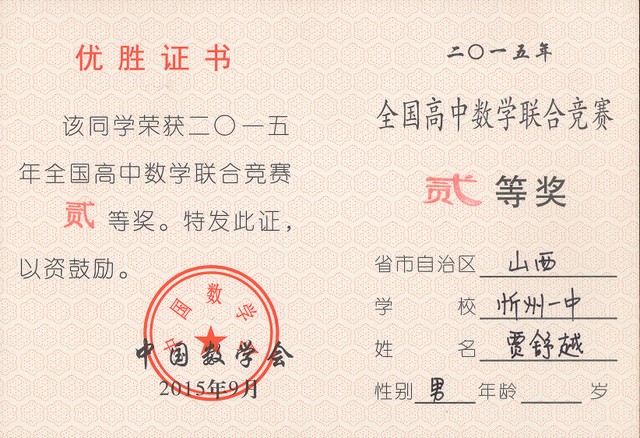 优胜证书
该同学荣获二〇一五
年全国高中数学联合竞赛
贰等奖。特发此证，
以资鼓励。
中国数学会
中国数学会
2015年9月
二〇一五年
全国高中数学联合竞赛
贰等奖
省市自治区 山西
学校 忻州一中
姓名 贾舒越
性别 男 年龄 岁